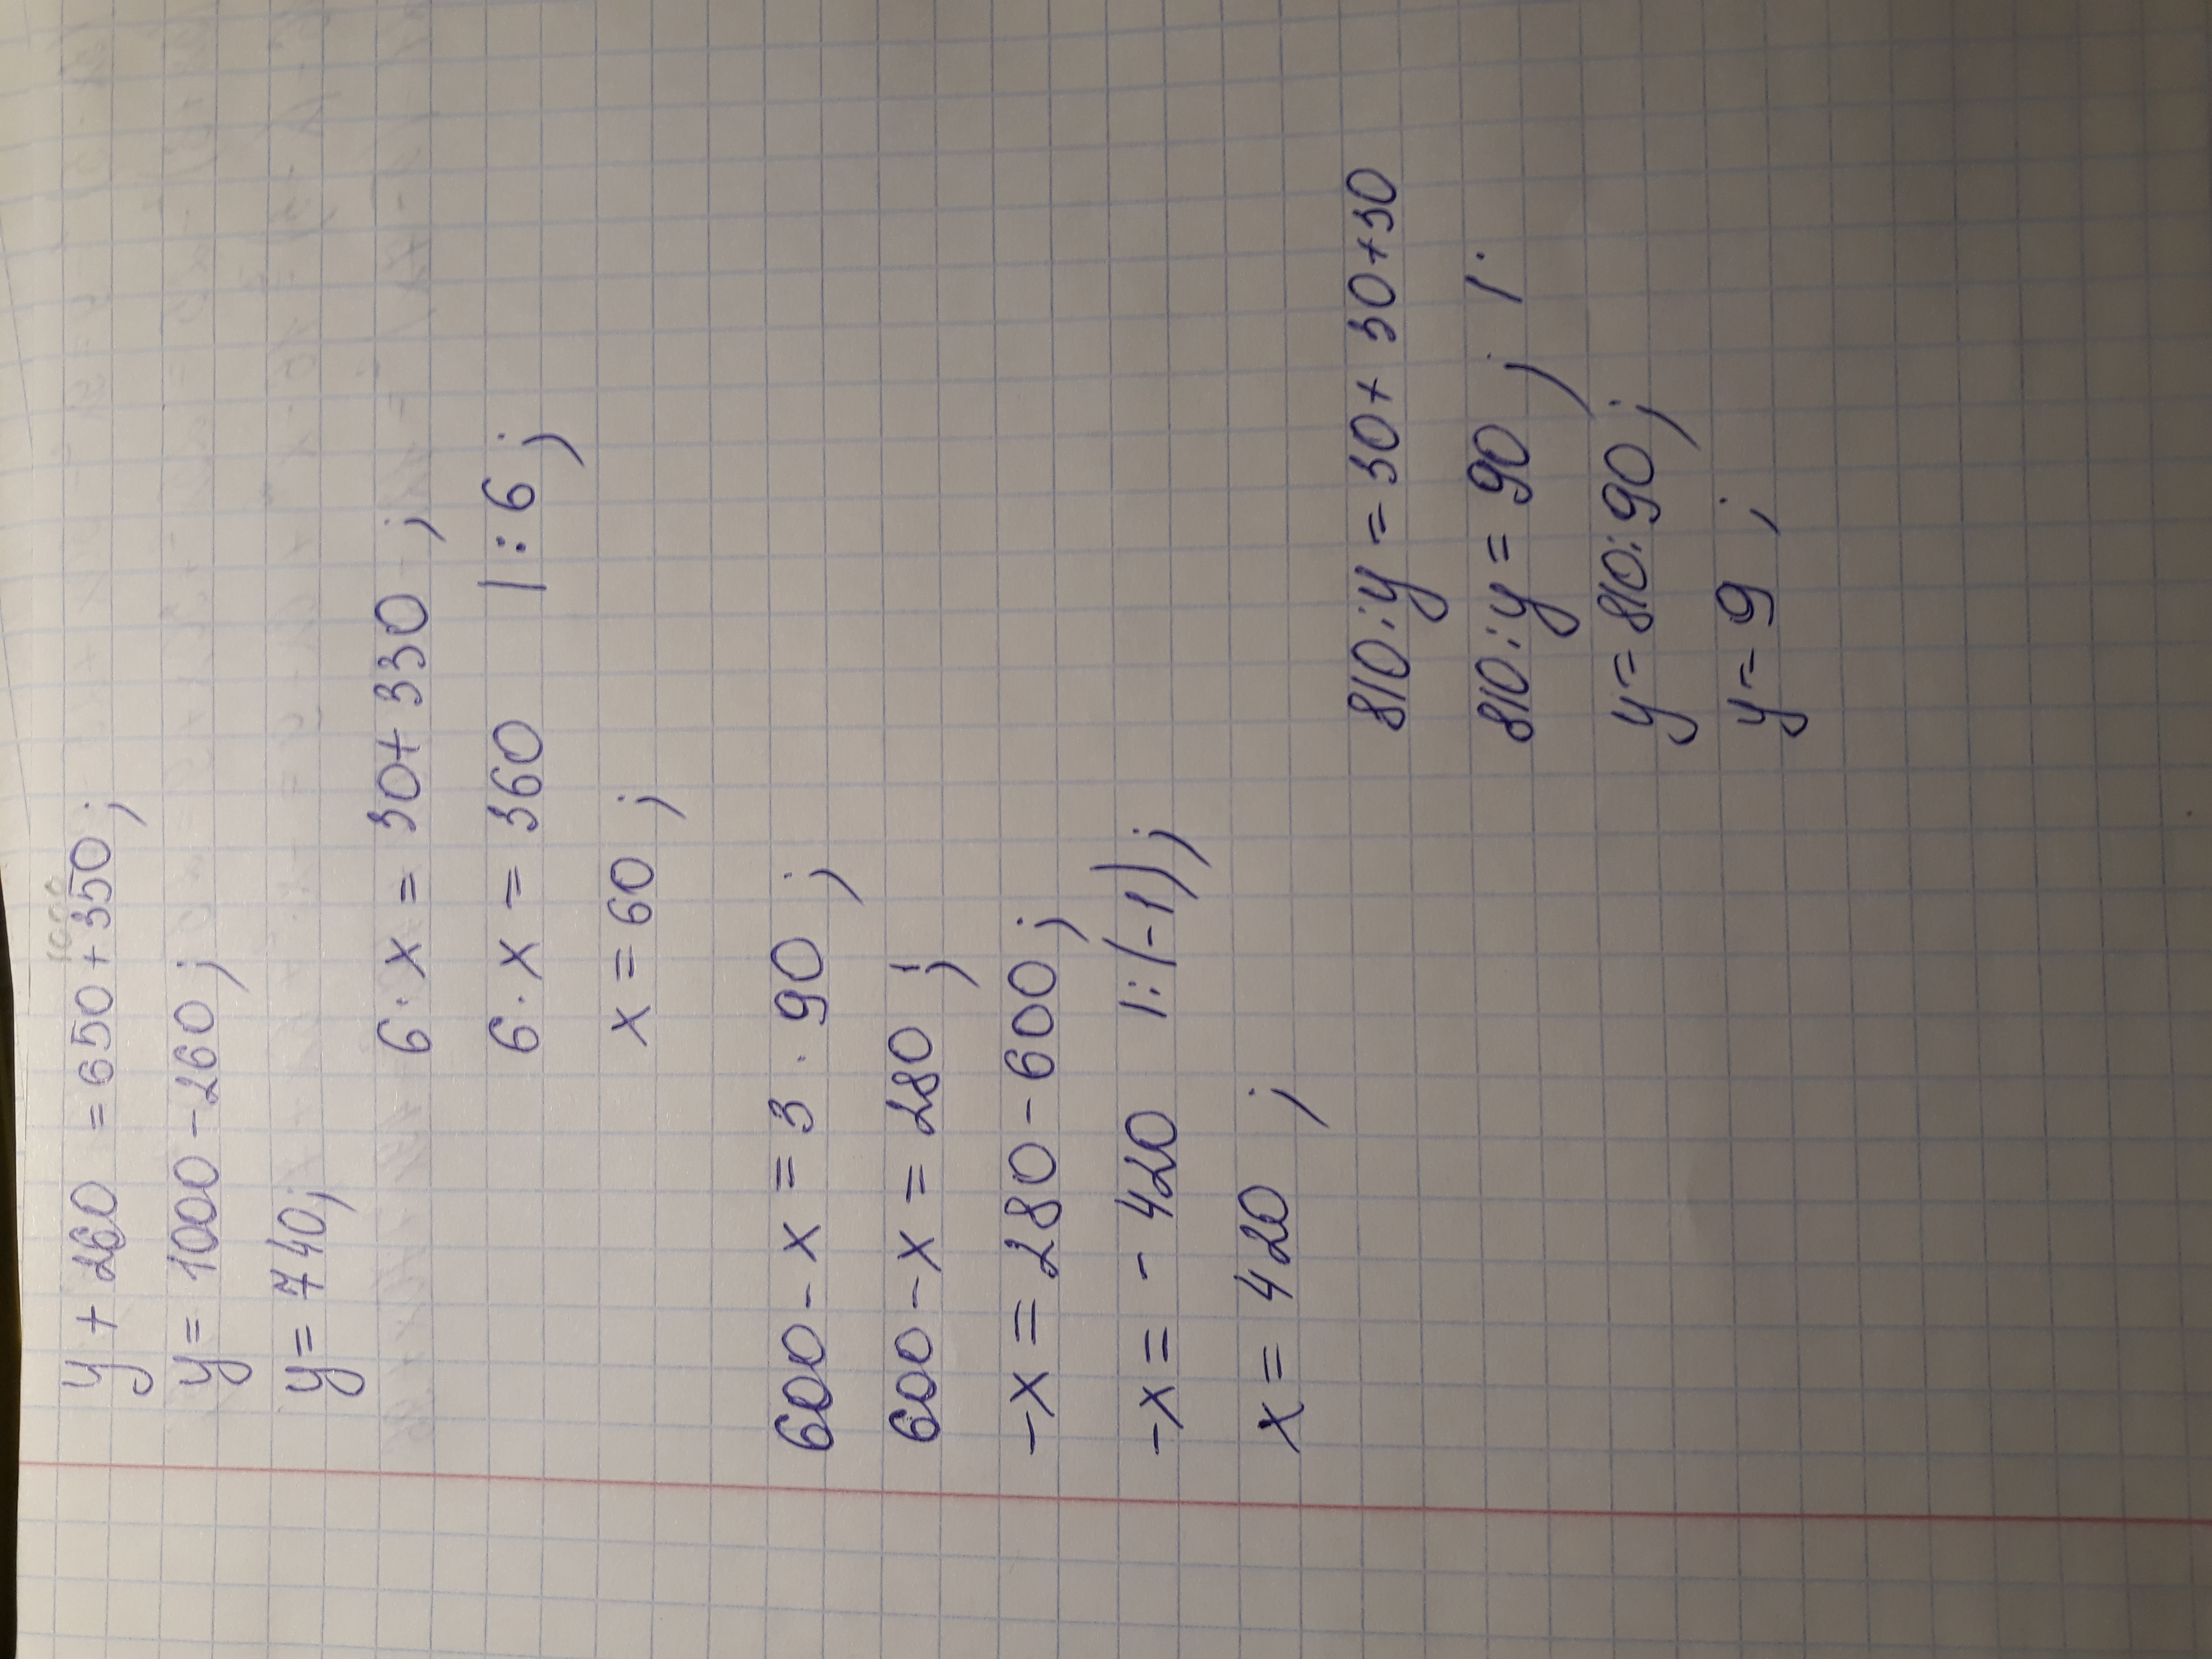 1000
y + 260 = 650 + 350;
y = 1000 - 260;
y = 740;
6 · x = 30 + 330;
6 · x = 360 |: 6;
x = 60;
600 - x = 3 · 90;
600 - x = 280;
-x = 280 - 600;
-x = - 420 |: (-1);
x = 420;
810 : y = 30 + 30 + 30
810 : y = 90; |·
y = 810 : 90;
y = 9;